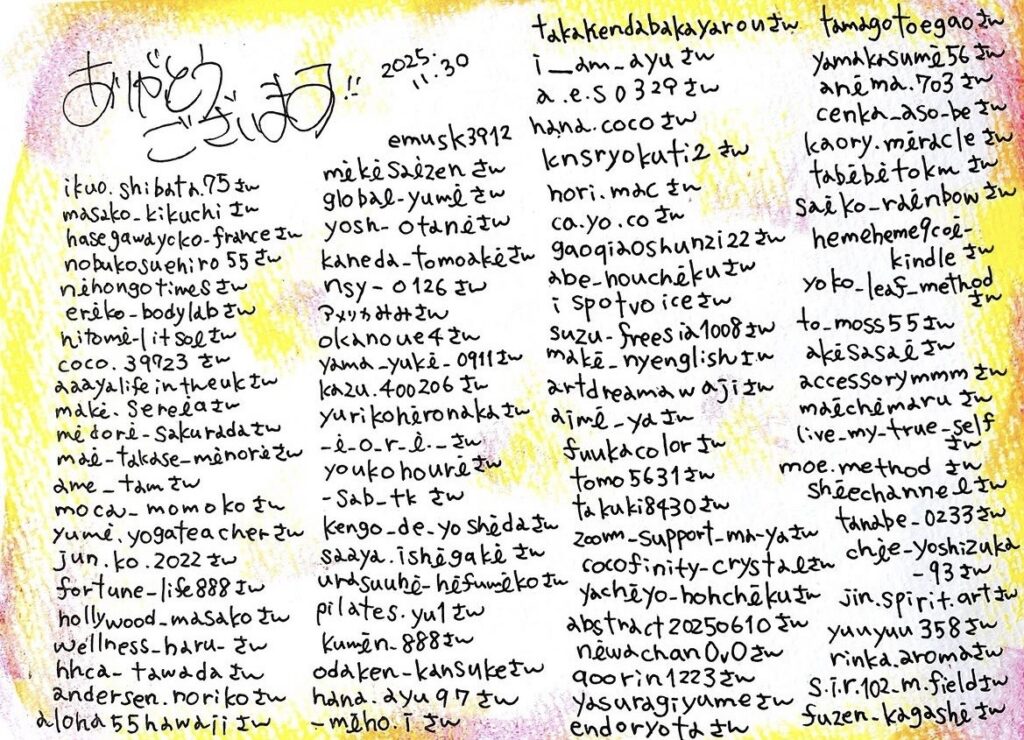 ありがとう
ございます!!
2025.
11.30
ikuo.shibata.75さん
masako_kikuchiさん
hasegawayoko_franceさん
nobukosuehiro55さん
nihongotimesさん
eriko_bodylabさん
hitomi_litsolさん
coco.39723さん
aaayalifeintheukさん
maki.sereiaさん
midori_sakuradaさん
mai_takase_minoriさん
ame_tamさん
moca_momokoさん
yumi.yogateacherさん
jun.ko.2022さん
fortune_life888さん
hollywood_masakoさん
wellness_haru_さん
hhca_tawadaさん
andersen.norikoさん
aloha55hawaiiさん
emusk3912
mikisaizenさん
global_yumiさん
yosh_otaniさん
kaneda_tomoakiさん
nsy_0126さん
アメリカみみさん
okanoue4さん
yama_yuki_0911さん
kazu.400206さん
yurikohironakaさん
_i_o_r_i_さん
youkohouriさん
_sab_tkさん
kengo_de_yoshidaさん
saaya.ishigakiさん
urasuuhi_hifumikoさん
pilates.yu1さん
kumin_888さん
odaken_kansukeさん
hana.ayu97さん
_miho.iさん
takakendabakayarouさん
i__am_ayuさん
a.e.s0329さん
hana.cocoさん
knsryokuti2さん
nori.macさん
ca.yo.coさん
gaoqiaoshunzi22さん
abe_houchikuさん
ispotvoiceさん
suzu_freesia1008さん
maki_nyenglishさん
artdreamawajiさん
aimi_yaさん
fuukacolorさん
tomo5631さん
takuki8430さん
zoom_support_ma_yaさん
cocofinity_crystalさん
yachiyo_hohchikuさん
abstract20250610さん
newachan0v0さん
qoorin1223さん
yasuragiyumeさん
endoryotaさん
tamagotoegaoさん
yamakasumi56さん
anima.703さん
cenka_aso_beさん
kaory.miracleさん
tabibitokmさん
saiko_rainbowさん
hemeheme9coi-
kindleさん
yoko_leaf_method
さん
to_moss55さん
akisasaiさん
accessorymmmさん
maichimaruさん
live_my_true_self
さん
moe.methodさん
shiechannelさん
tanabe_0233さん
chie_yoshizuka
_93さん
jin.spirit.artさん
yuuyuu358さん
rinka.aromaさん
s.i.r.102_m.fieldさん
fuzen_kagashiさん